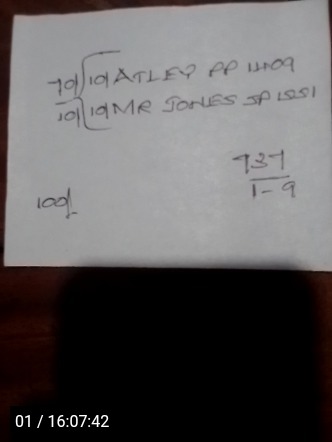 70/ 10/ ATLEY PP 1409
10/ 10/ MR JONES SP 1551
737
1-9
100/
01 / 16:07:42